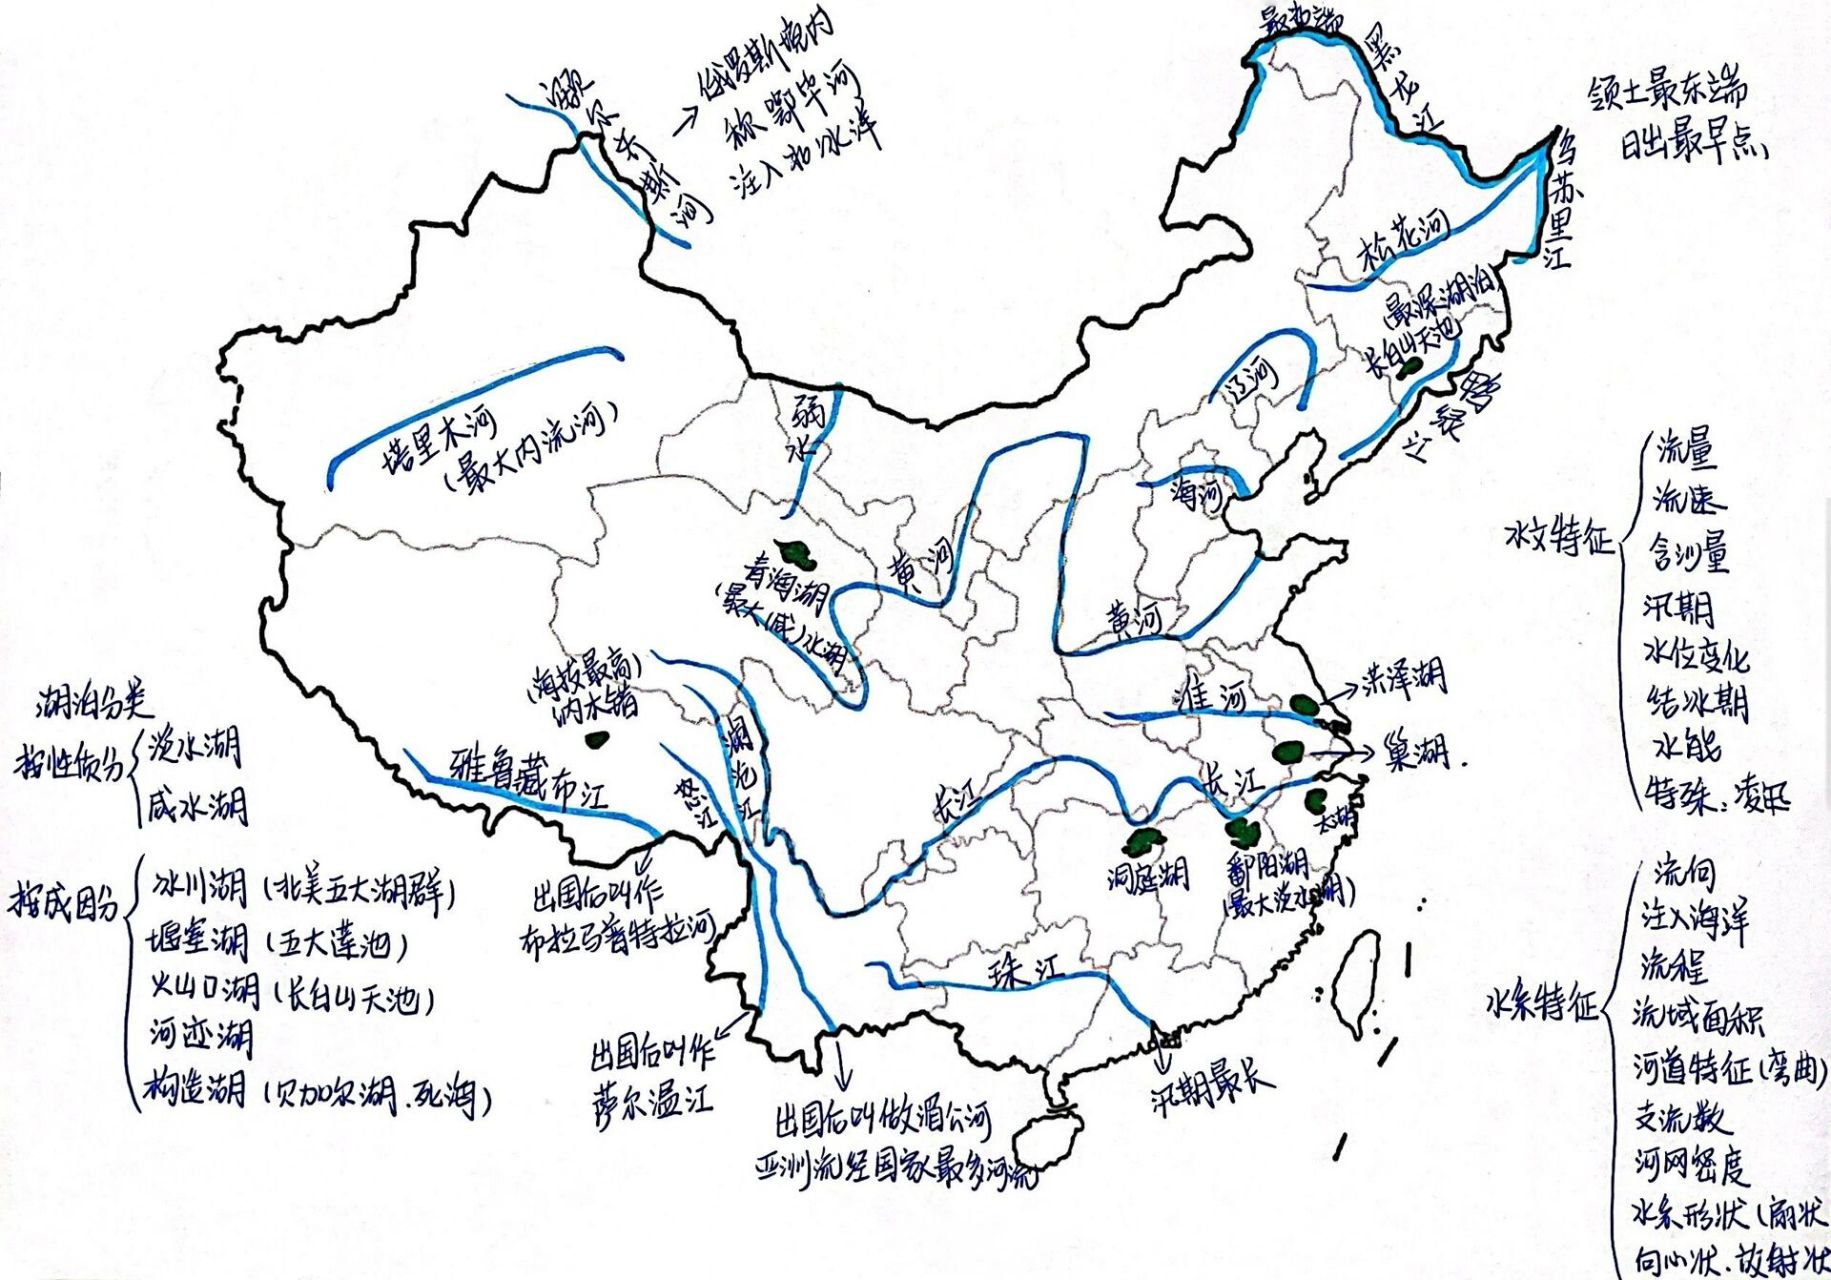 最北端
黑龙江
额尔齐斯河
→俄罗斯境内
称鄂毕河
注入北冰洋
领土最东端
日出最早点
乌苏里江
松花河
(最深湖泊)
长白山天池
鸭绿江
辽河
海河
弱水
塔里木河
(最大内流河)
青海湖
(最大(咸)水湖
黄河
黄河
(海拔最高)
纳木错
雅鲁藏布江
怒江
澜沧江
长江
长江
淮河
→洪泽湖
→巢湖.
太湖
洞庭湖
鄱阳湖
(最大淡水湖)
珠江
汛期最长
出国后叫作
布拉马普特拉河
出国后叫作
萨尔温江
出国后叫做湄公河
亚洲流经国家最多河流
湖泊分类
按性质分
淡水湖
咸水湖
按成因分
冰川湖(北美五大湖群)
堰塞湖(五大莲池)
火山口湖(长白山天池)
河迹湖
构造湖(贝加尔湖.死海)
水文特征
流量
流速
含沙量
汛期
水位变化
结冰期
水能
特殊:凌汛
水系特征
流向
注入海洋
流程
流域面积
河道特征(弯曲)
支流数
河网密度
水系形状(扇状
向心状.放射状